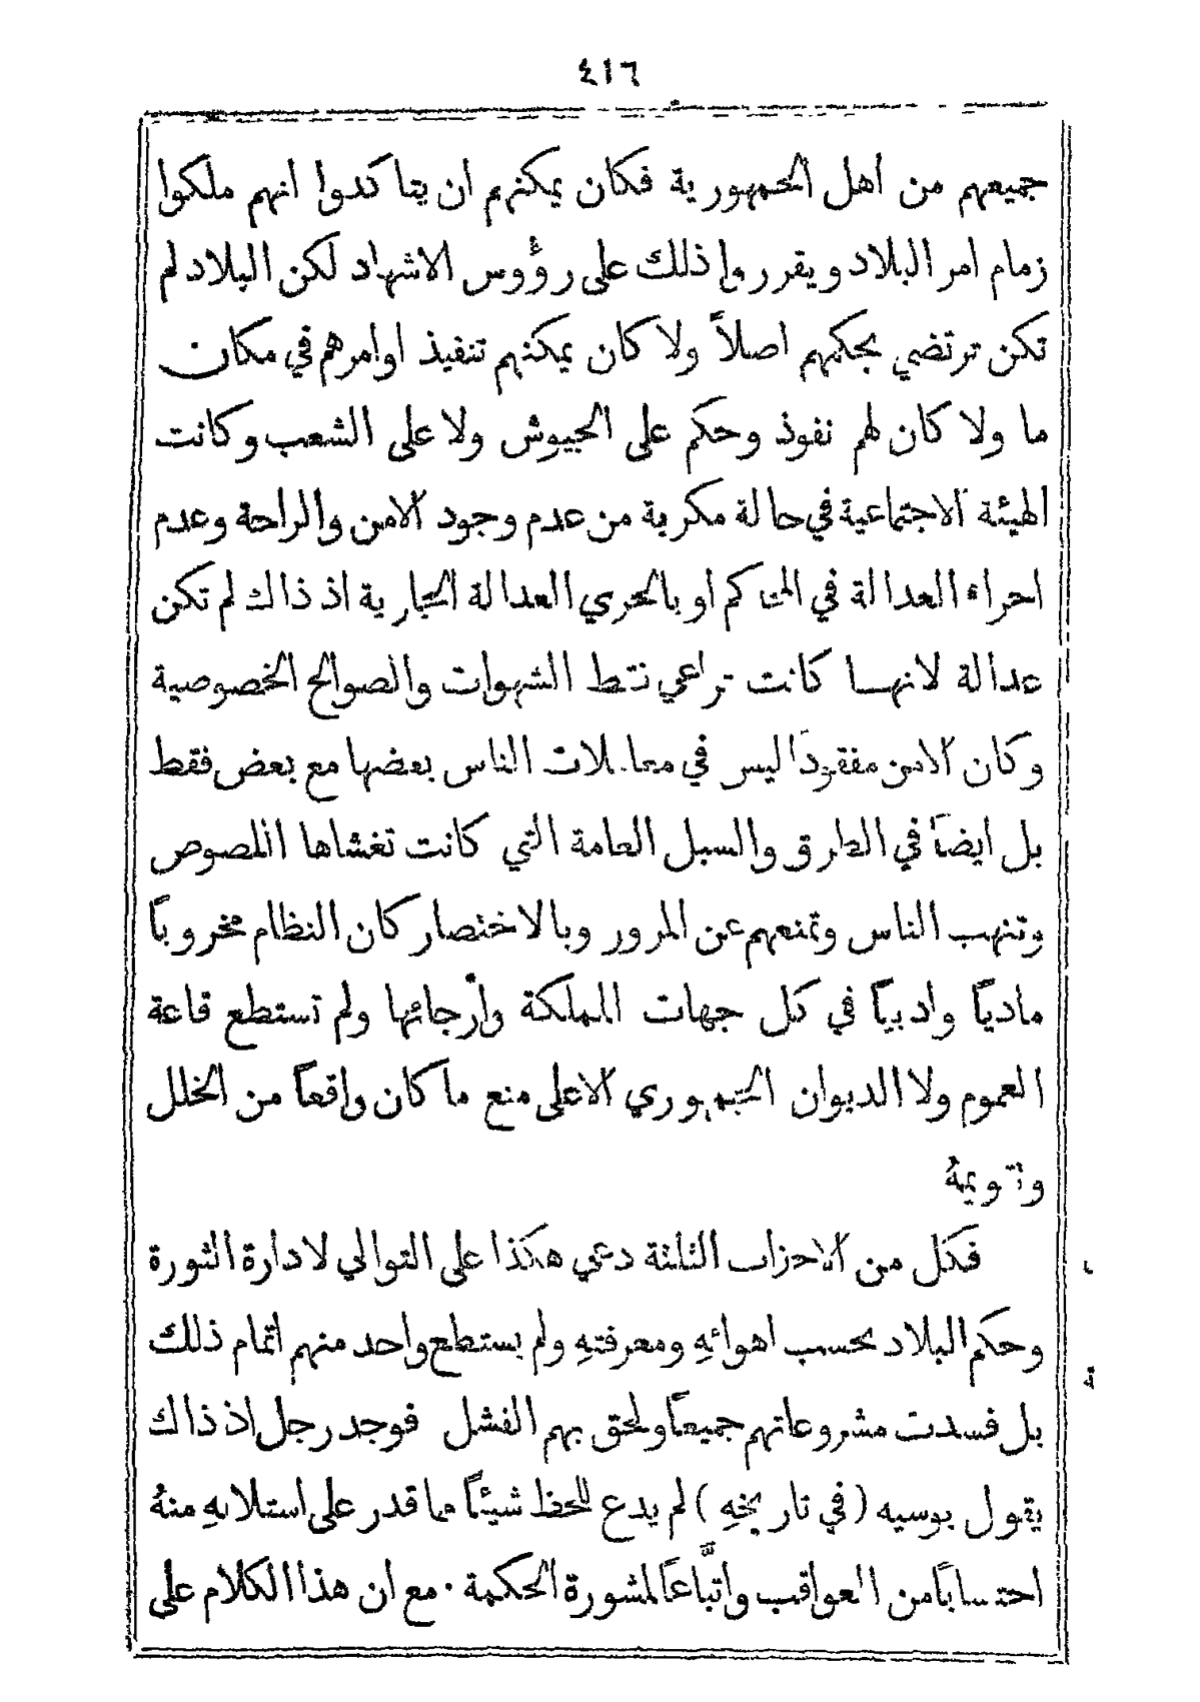 ٤١٦
جميعهم من اهل الجمهورية فكان يمكنهم ان يتاكدوا انهم ملكوا
زمام امر البلاد ويقرروا ذلك على رؤوس الاشهاد لكن البلاد لم
تكن ترتضي بحكمهم اصلاً ولا كان يمكنهم تنفيذ اوامرهم في مكان
ما ولا كان لهم نفوذ وحكم على الجيوش ولا على الشعب وكانت
الهيئة الاجتماعية في حالة مكربة من عدم وجود الامن والراحة وعدم
اجراء العدالة في المحاكم او بالحري العدالة الجارية اذ ذاك لم تكن
عدالة لانهـا كانت تراعي فقط الشهوات والصوالح الخصوصية
وكان الامن مفقوداً ليس في معاملات الناس بعضها مع بعض فقط
بل ايضاً في الطرق والسبل العامة التي كانت تغشاها اللصوص
وتنهب الناس وتمنعهم عن المرور وبالاختصار كان النظام مخروباً
مادياً وادبياً في كل جهات المملكة وأرجائها ولم تستطع قاعة
العموم ولا الديوان الجمهوري الاعلى منع ما كان واقعاً من الخلل
وتقويمهُ
فكل من الاحزاب الثلثة دعي هكذا على التوالي لادارة الثورة
وحكم البلاد بحسب اهوائهِ ومعرفتهِ ولم يستطع واحد منهم اتمام ذلك
بل فسدت مشروعاتهم جميعاً ولحق بهم الفشل فوجد رجل اذ ذاك
يقول بوسيه (في تاريخهِ) لم يدع للحظ شيئاً مما قدر على استلابهِ منهُ
احتساباً من العواقب واتّباعاً لمشورة الحكمة . مع ان هذا الكلام على